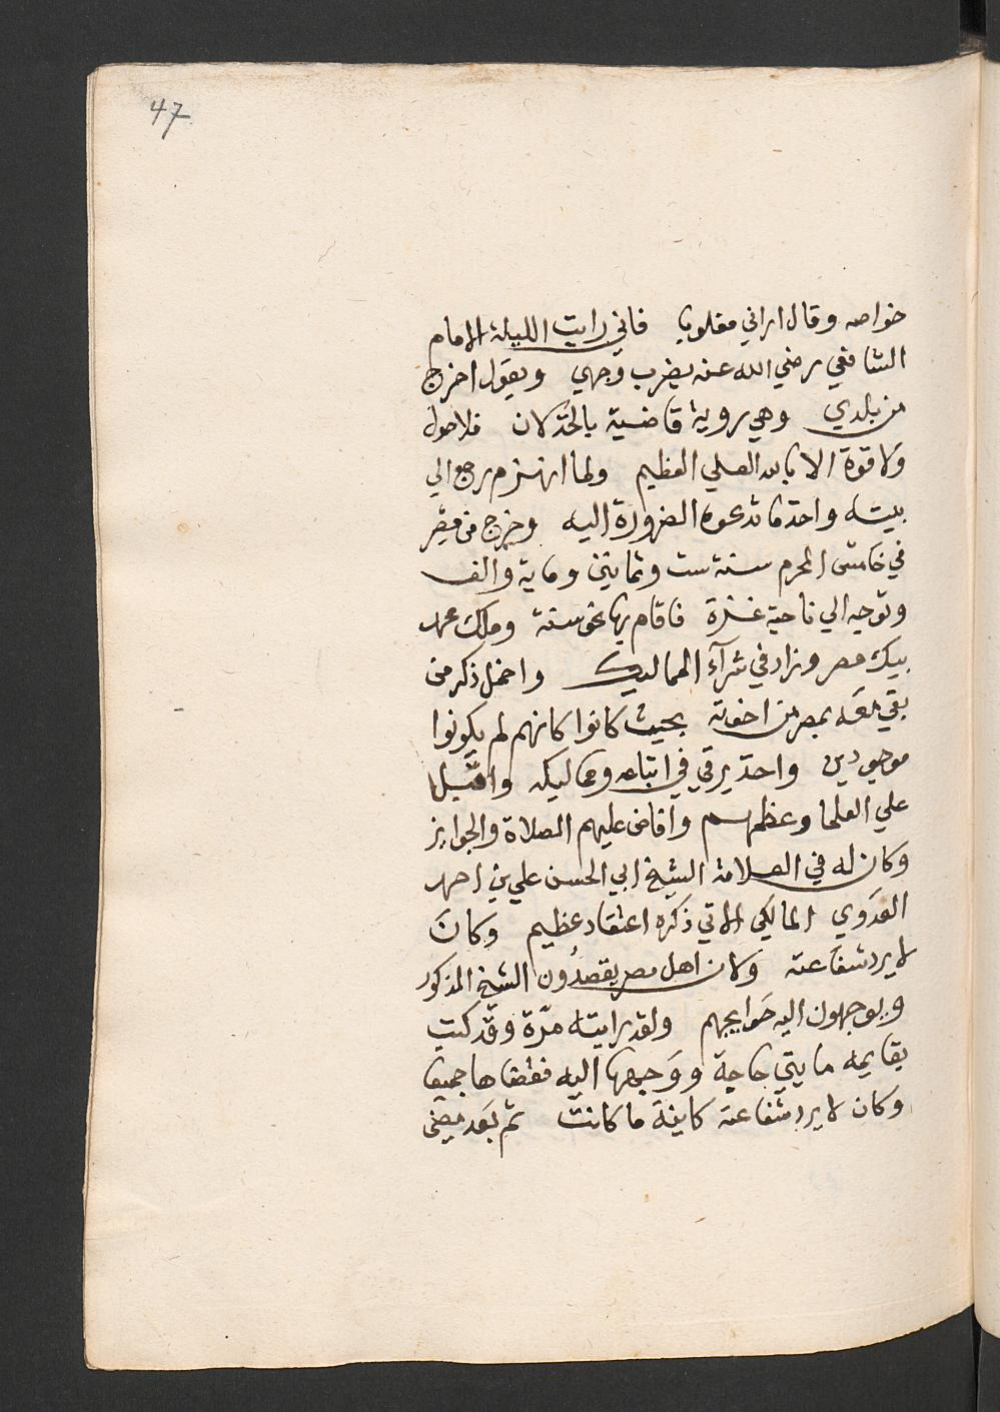 47
خواصه وقال اراني مغلوبا فاني رايت الليلة الامام
الشافعي رضي الله عنه يضرب وجهي ويقول اخرج
من بلدي وهي روية قاضية بالخذلان فلا حول
ولا قوة الا بالله العلي العظيم ولما انهزم رجع الي
بيته واخذ ما تدعوه الضرورة اليه وخرج من مصر
في خامس المحرم سنة ست وثمانين وماية والف
وتوجه الي ناحية غزة فاقام بها نحو سنة وملك محمد
بيك مصر وزاد في شرآء المماليك واخمل ذكر من
بقي معه بمصر من اخوته بحيث كانوا كانهم لم يكونوا
موجودين واخذ يرقي في اتباعه ومماليكه واقبل
علي العلما وعظمهم وافاض عليهم الصلاة والجوايز
وكان له في العلامة الشيخ ابي الحسن علي بن احمد
العدوي المالكي الاتي ذكره اعتقاد عظيم وكان
لا يرد شفاعته وكان اهل مصر يقصدون الشيخ المذكور
ويوجهون اليه حوايجهم ولقد رايته مرة وقد كتب
بقايمه مايتي حاجة ووجهها اليه فقضاها جميعا
وكان لا يرد شفاعته كاينة ما كانت ثم بعد مضي